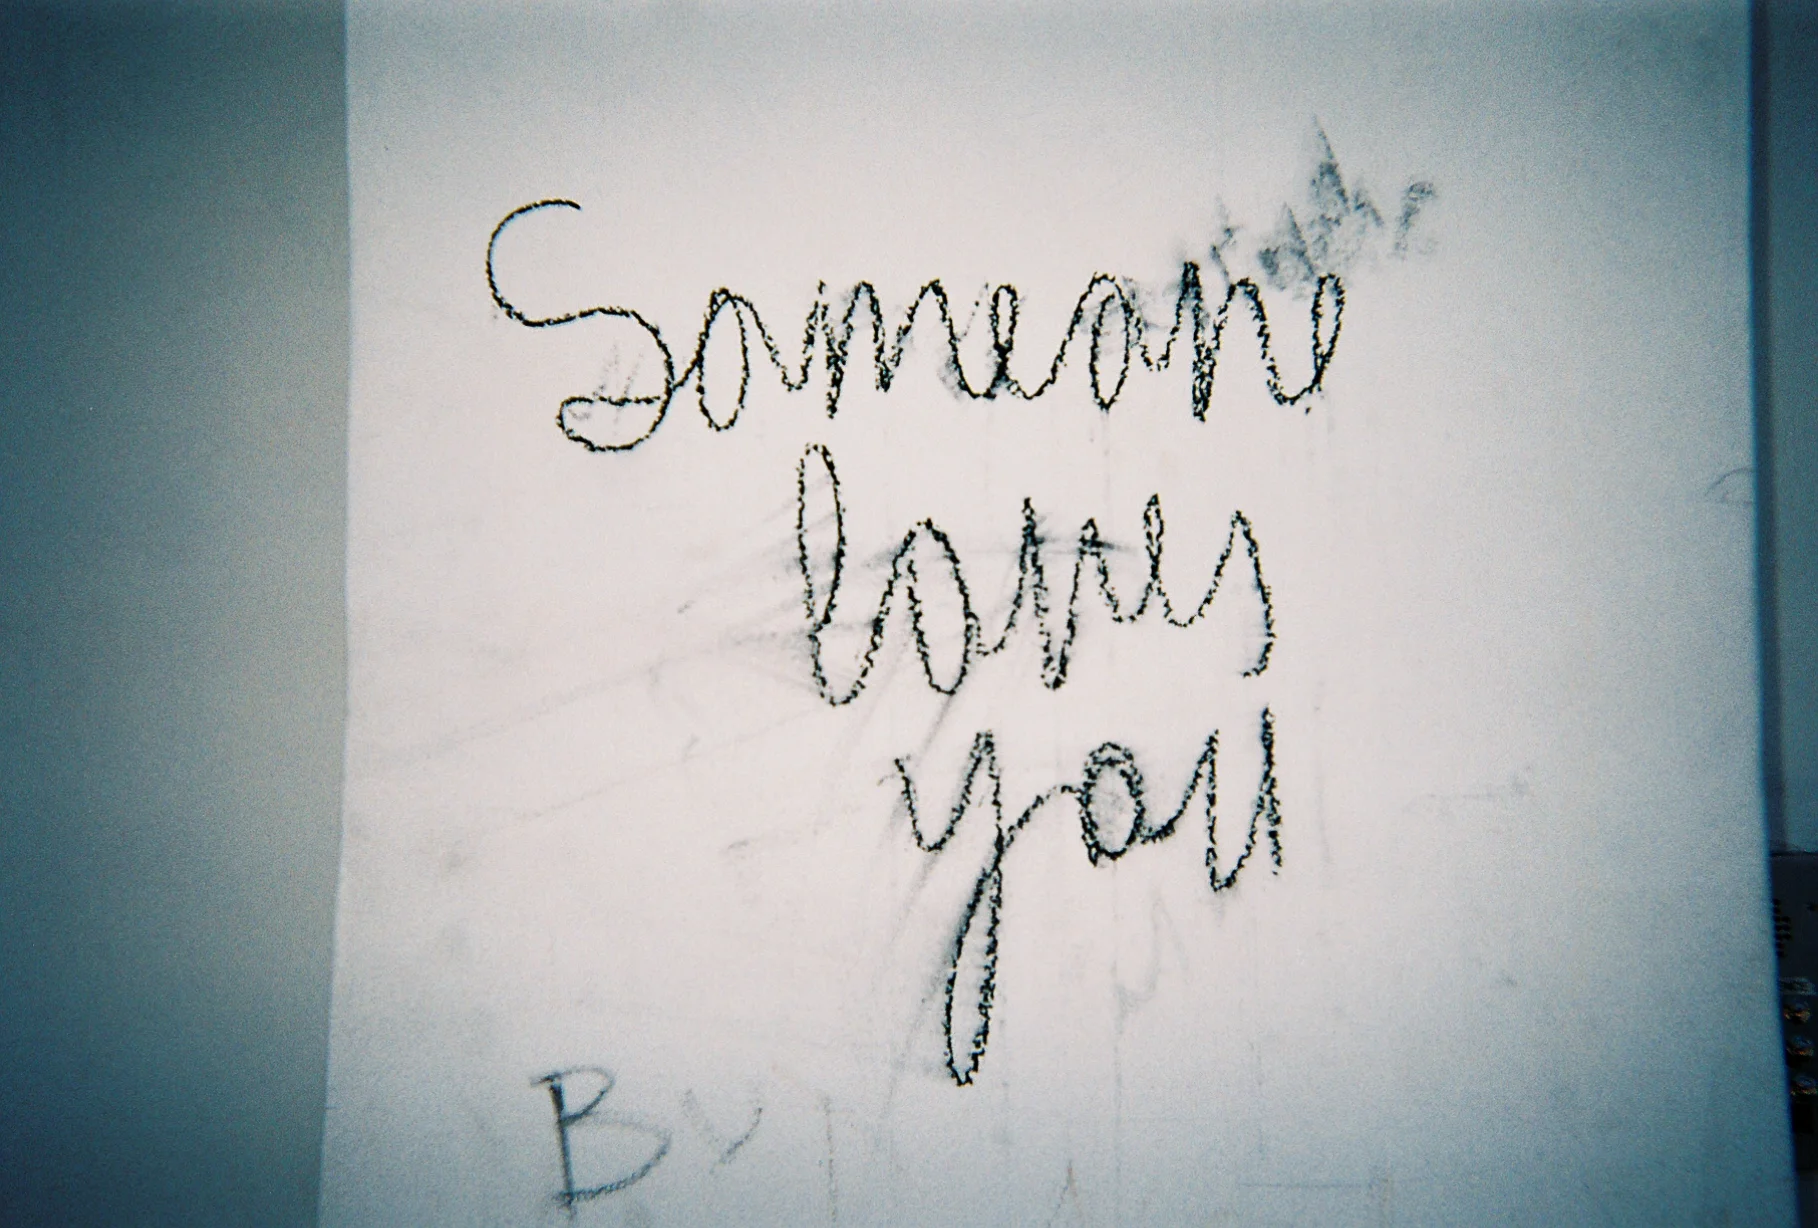 Someone
loves
you
By